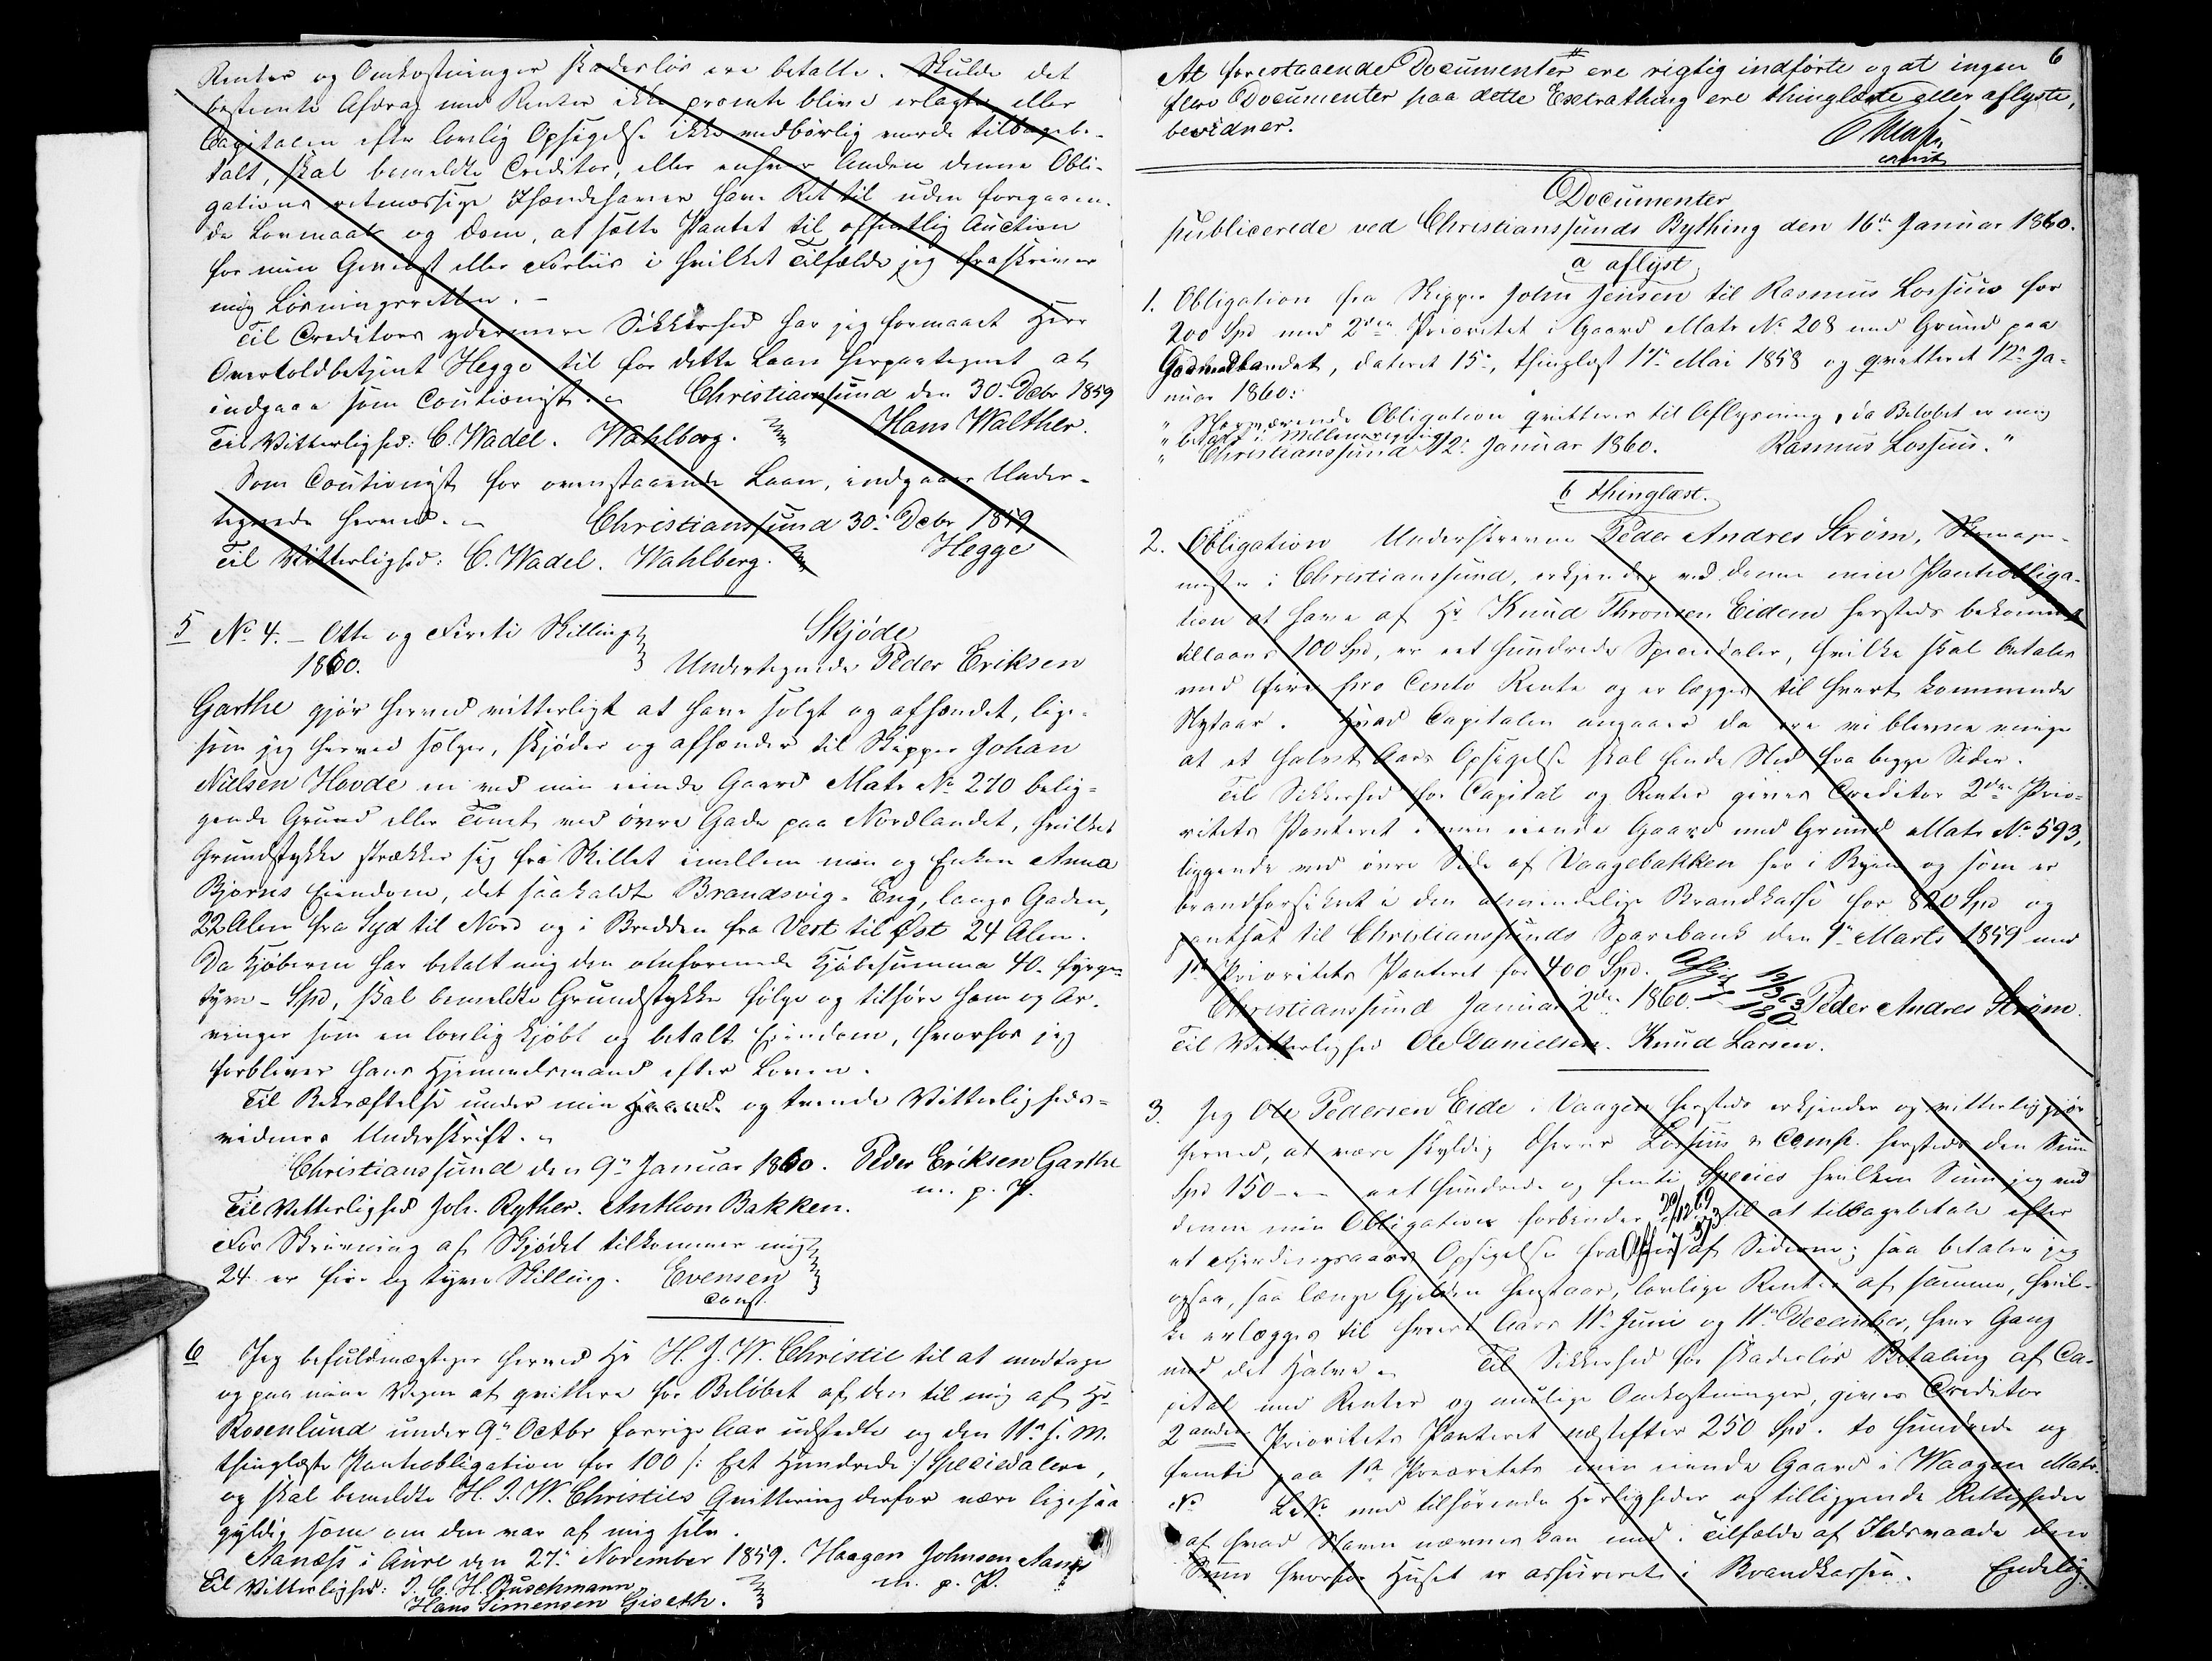 Renter og Omkostninger skadesløs ere betalte. Skulde det
bestemte Afdrag med Renter ikke promte blive erlagte eller
Capitalen efter lovlig Opsigelse ikke vedbørlig vorde tilbagebe-
talt, skal bemeldte Creditor, eller enhver Anden denne Obli-
gations retmæssige Ihændehaver have Ret til uden foregaaen-
de Lovmaal og Dom, at sætte Pantet til offentlig Auction
for min Gevinst eller Forliis i hvilket Tilfælde jeg fraskriver
mig Løsningsretten. -
Til Creditors ydermere Sikkerhed har jeg formaaet Herr
Overtoldbetjent Hegge til for dette Laan herpaategnet at
indgaae som Coutionist. Christianssund den 30. Decbr 1859
Til Vitterlighed: C. Wadel. Wahlberg. Hans Walther.
Som Coutionist for ovenstaaende Laan, indgaaer Under-
tegnede herved. Christianssund 30. Decbr 1859
Til Vitterlighed: C. Wadel. Wahlberg. Hegge
5 No 4. - Otte og Fireti Skilling Skjøde
1860. Undertegnede Peder Eriksen
Garthe gjør herved vitterligt at have solgt og afhændet, lige-
som jeg herved sælger, skjøder og afhænder til Skipper Johan
Nielsen Hovde en ved min eiende Gaard Matr No 270 belig-
gende Grund eller Tomt ved øvre Gade paa Nordlandet, hvilket
Grundstykke strækker sig fra Skillet imellem min og Enken Anna
Bjørns Eiendom, det saakaldte Brandsvig-Eng, langs Gaden,
22 Alen fra Syd til Nord og i Bredden fra Vest til Øst 24 Alen.
Da Kjøberen har betalt mig den omforenede Kjøbesumma 40. fyrge-
tyve - Spd, skal bemeldte Grundstykke følge og tilhøre ham og Ar-
vinger som en lovlig kjøbt og betalt Eiendom, hvorfor jeg
forbliver hans Hjemmelsmand efter Loven.
Til Bekræftelse under min Haand og tvende Vitterligheds-
vidners Underskrift.
Christianssund den 9de Januar 1860. Peder Eriksen Garthe
Til Vitterlighed Joh. Ryther. Anthon Bakken. m. p. P.
For Skrivning af Skjødet tilkommer mig
24 er fire og tyve Skilling. Evensen
const.
6 Jeg befuldmægtiger herved Hr H. J. W. Christie til at modtage
og paa mine Vegne at qvittere for Beløbet af den til mig af Hr
Rosenlund under 9de Octbr forrige Aar udstedte og den 11te s. M.
thinglæste Pantobligation for 100 /: Eet Hundrede :/ Speciedaler,
og skal bemeldte H. J. W. Christies Qvittering derfor være ligesaa
gyldig som om den var af mig selv.
Aanæss i Aure den 27. November 1859. Haagen Johnsen
Til Vitterlighed: J. C. H. Buschmann m. p. P.
Hans Simensen Giseth.
6
At forestaaende Documenter ere rigtig indførte og at ingen
flere Documenter paa dette Extrathing ere thinglæste eller aflyste,
bevidner.
const
Documenter
publicerede ved Christianssunds Bything den 16de Januar 1860.
a aflyst
1. Obligation fra Skipper John Jensen til Rasmus Lossius for
200 Spd med 2den Prioritet i Gaard Matr No 208 med Grund paa
Gomalandet, dateret 15de, thinglæst 17de Mai 1858 og qvitteret 12te Ja-
nuar 1860:
" Nærværende Obligation qvitteres til Aflysning, da Beløbet er mig
" betalt i Mellemregning
" Christianssund 12. Januar 1860. Rasmus Lossius. "
b thinglæst.
2. Obligation Underskrevne Peder Andres Strøm,
mester i Christianssund, erkjender ved denne min Pantobliga-
tion at have af Hr Knud Thronsen Eidem hersteds bekommet
tillaans 100 Spd, er eet hundrede Speciedaler, hvilke skal betales
med fire pro Cento Rente og erlægges til hvert kommende
Nytaar. Hvad Capitalen angaaer da ere vi blevne enige
at et halvt Aars Opsigelse skal finde Sted fra begge Sider.
Til Sikkerhed for Capital og Renter gives Creditor 2den Prio-
ritets Panteret i min eiende Gaard med Grund Matr No 593,
liggende ved øvre Side af Vaagebakken her i Byen og som er
brandforsikret i den almindelige Brandkasse for 820 Spd og
pantsat til Christianssunds Sparebank den 1ste Marts 1859 med
1ste Prioritets Panteret for 400 Spd.
Christianssund Januar 2den 1860. Peder Andres Strøm.
Til Vitterlighed Ole Danielsen. Knud Larsen.
3. Jeg Ole Pedersen Eide i Vaagen hersteds erkjender og vitterliggjør
herved, at være skyldig Dherrer Lossius & Comp. hersteds den Sum
Spd 150 - eet hundrede og femti Species hvilken Sum jeg ved
denne min Obligation forbinder mig til at tilbagebetale efter
et Fjerdingaars Opsigelse fra af Siderne; saa betaler jeg
ogsaa, saa længe Gjelden henstaar, lovlige Renter af samme, hvil-
ke erlægges til hvert Aars 11te Juni og 11te December, hver Gang
med det Halve. Til Sikkerhed for skadesløs Betaling af Ca-
pital med Renter og mulige Omkostninger, gives Creditor
2anden Prioritets Panteret næstefter 250 Spd. to hundrede og
femti paa 1ste Prioritets min eiende Gaard i Waagen Matr.
No LNo med tilhørende Herligheder og tilliggende Rettigheder
af hvad Navn nævnes kan med i Tilfælde af Ildsvaade den
Sum hvorfor Huset er assureret i Brandkassen. Endelig